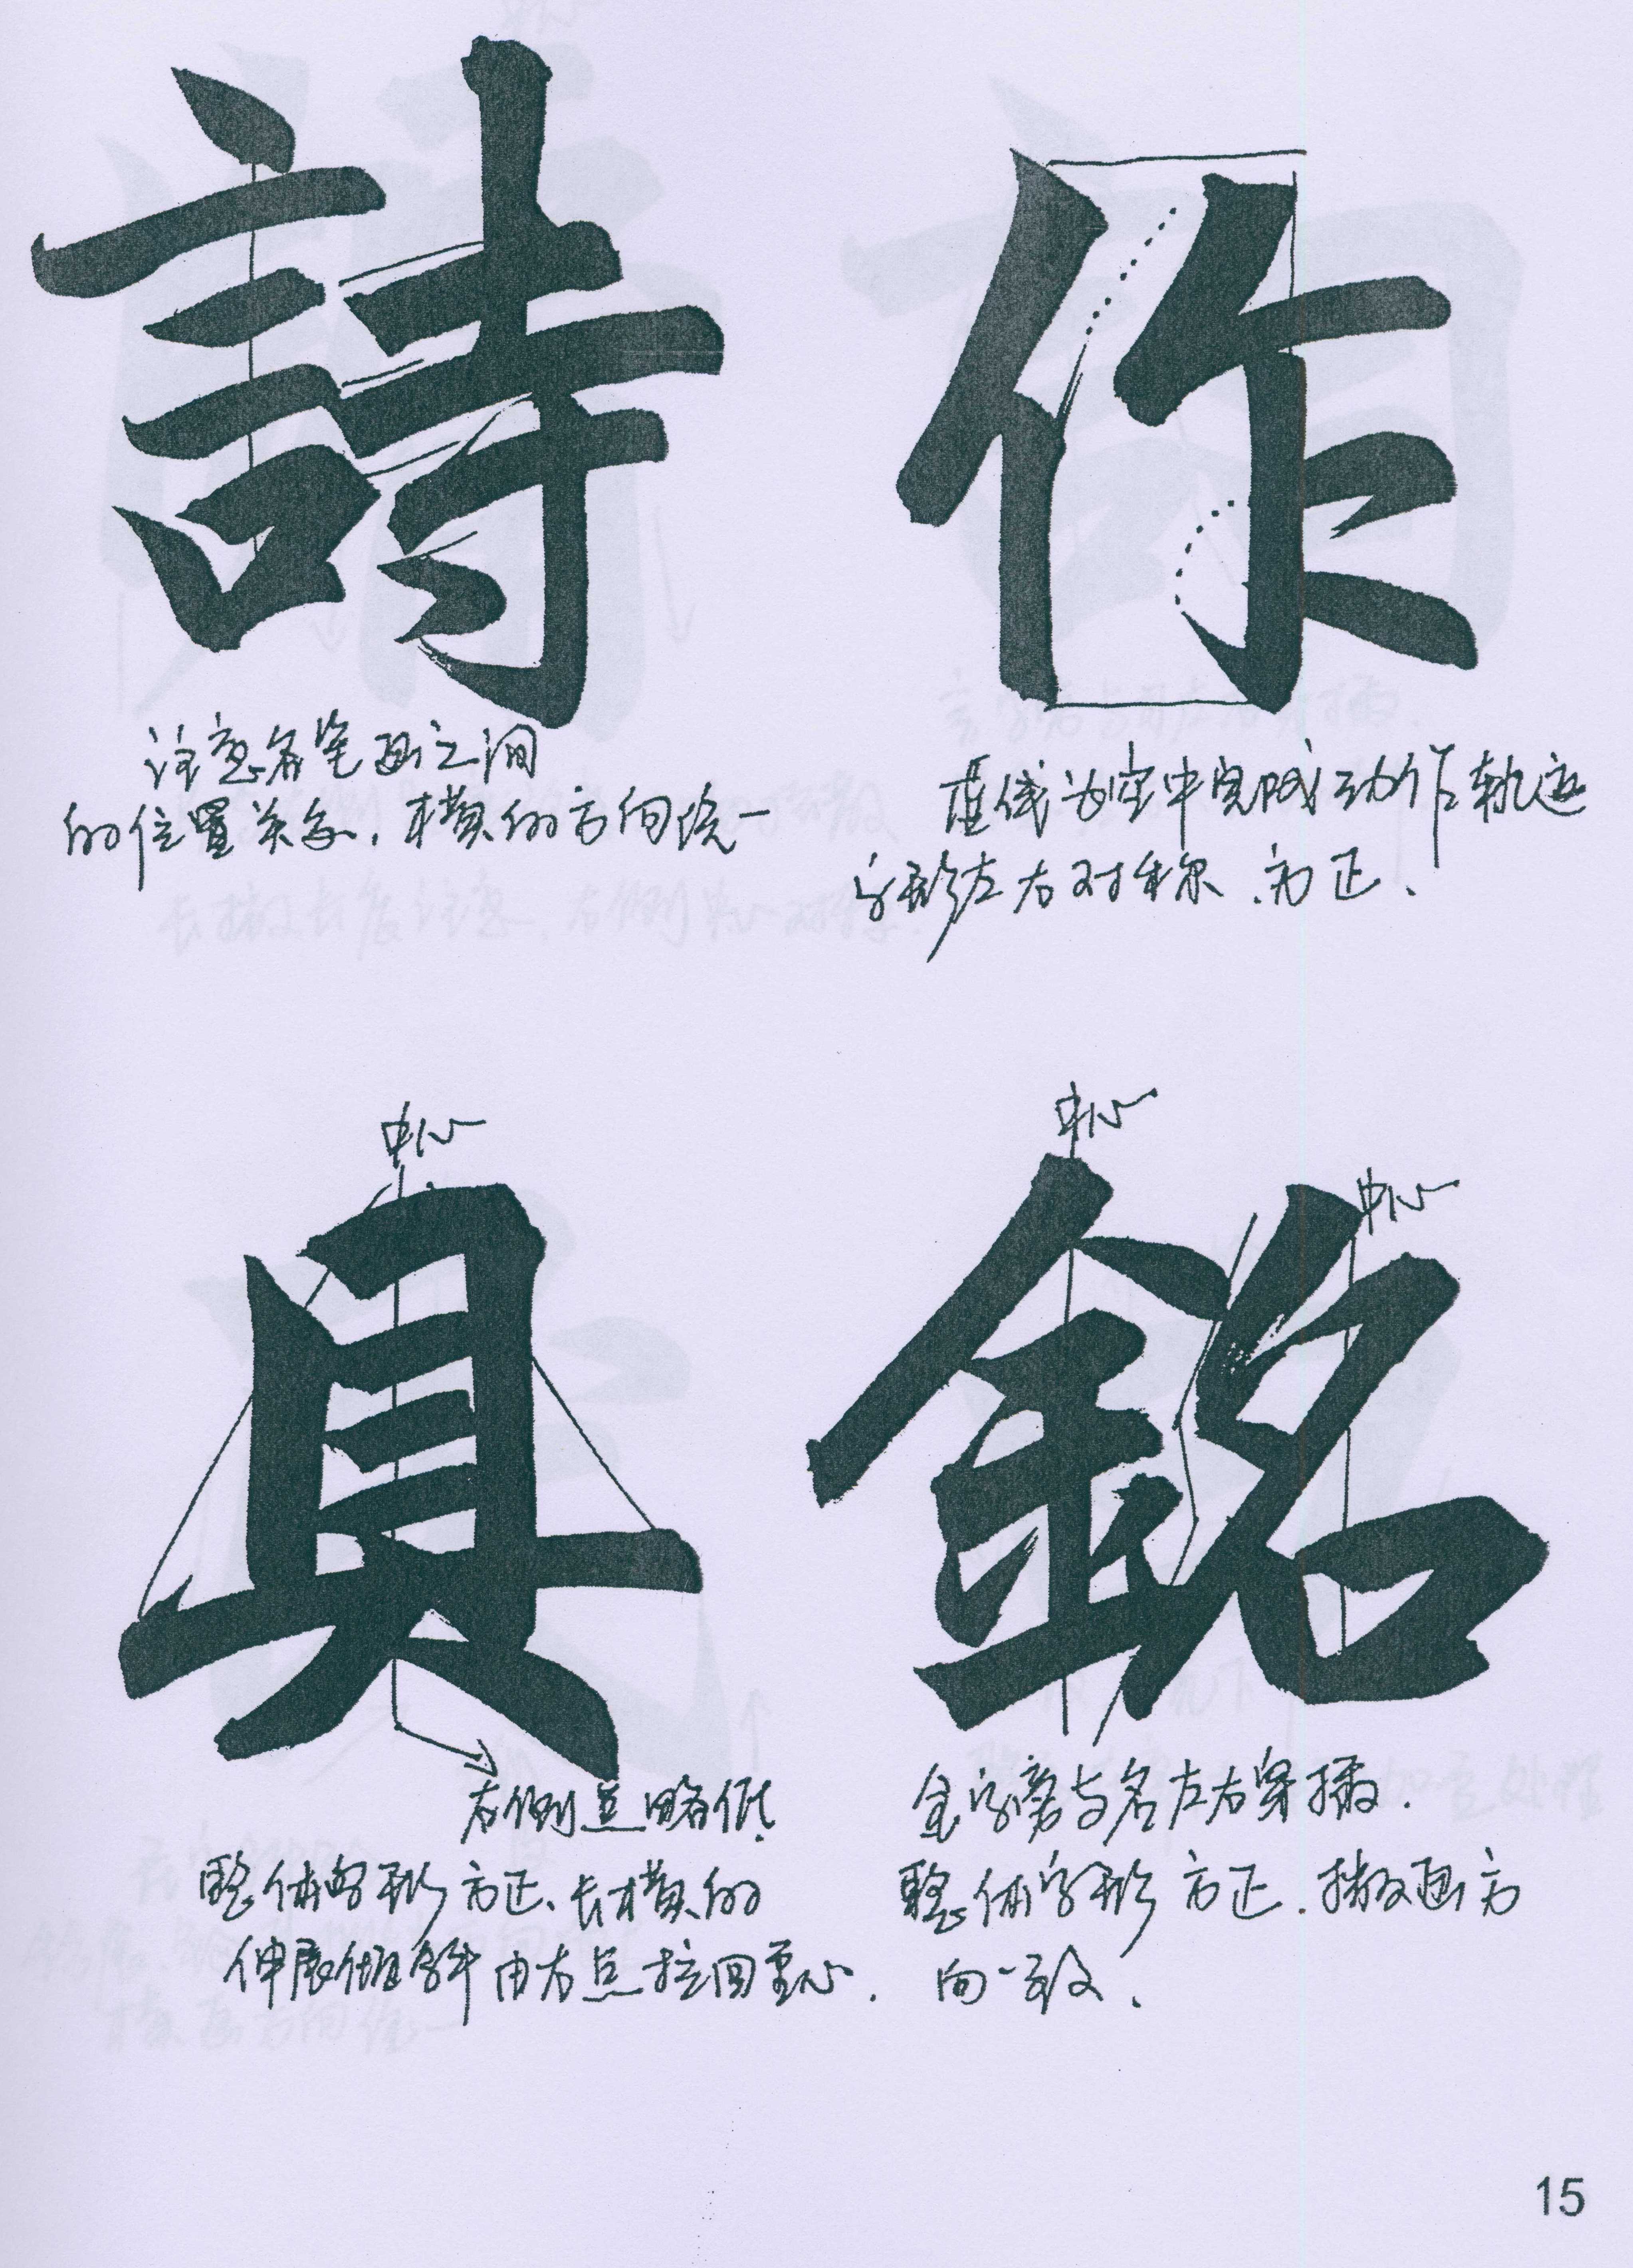 詩
作
注意各笔画之间
的位置关系，横的方向统一
虚线为空中完成动作轨迹
字形左右对称、方正、
中心
具
右侧点略低
整体字形方正、长横的
伸展倾斜由右点拉回重心．
中心
中心
銘
金字旁与名左右穿插．
整体字形方正．撇画方
向一致、
15